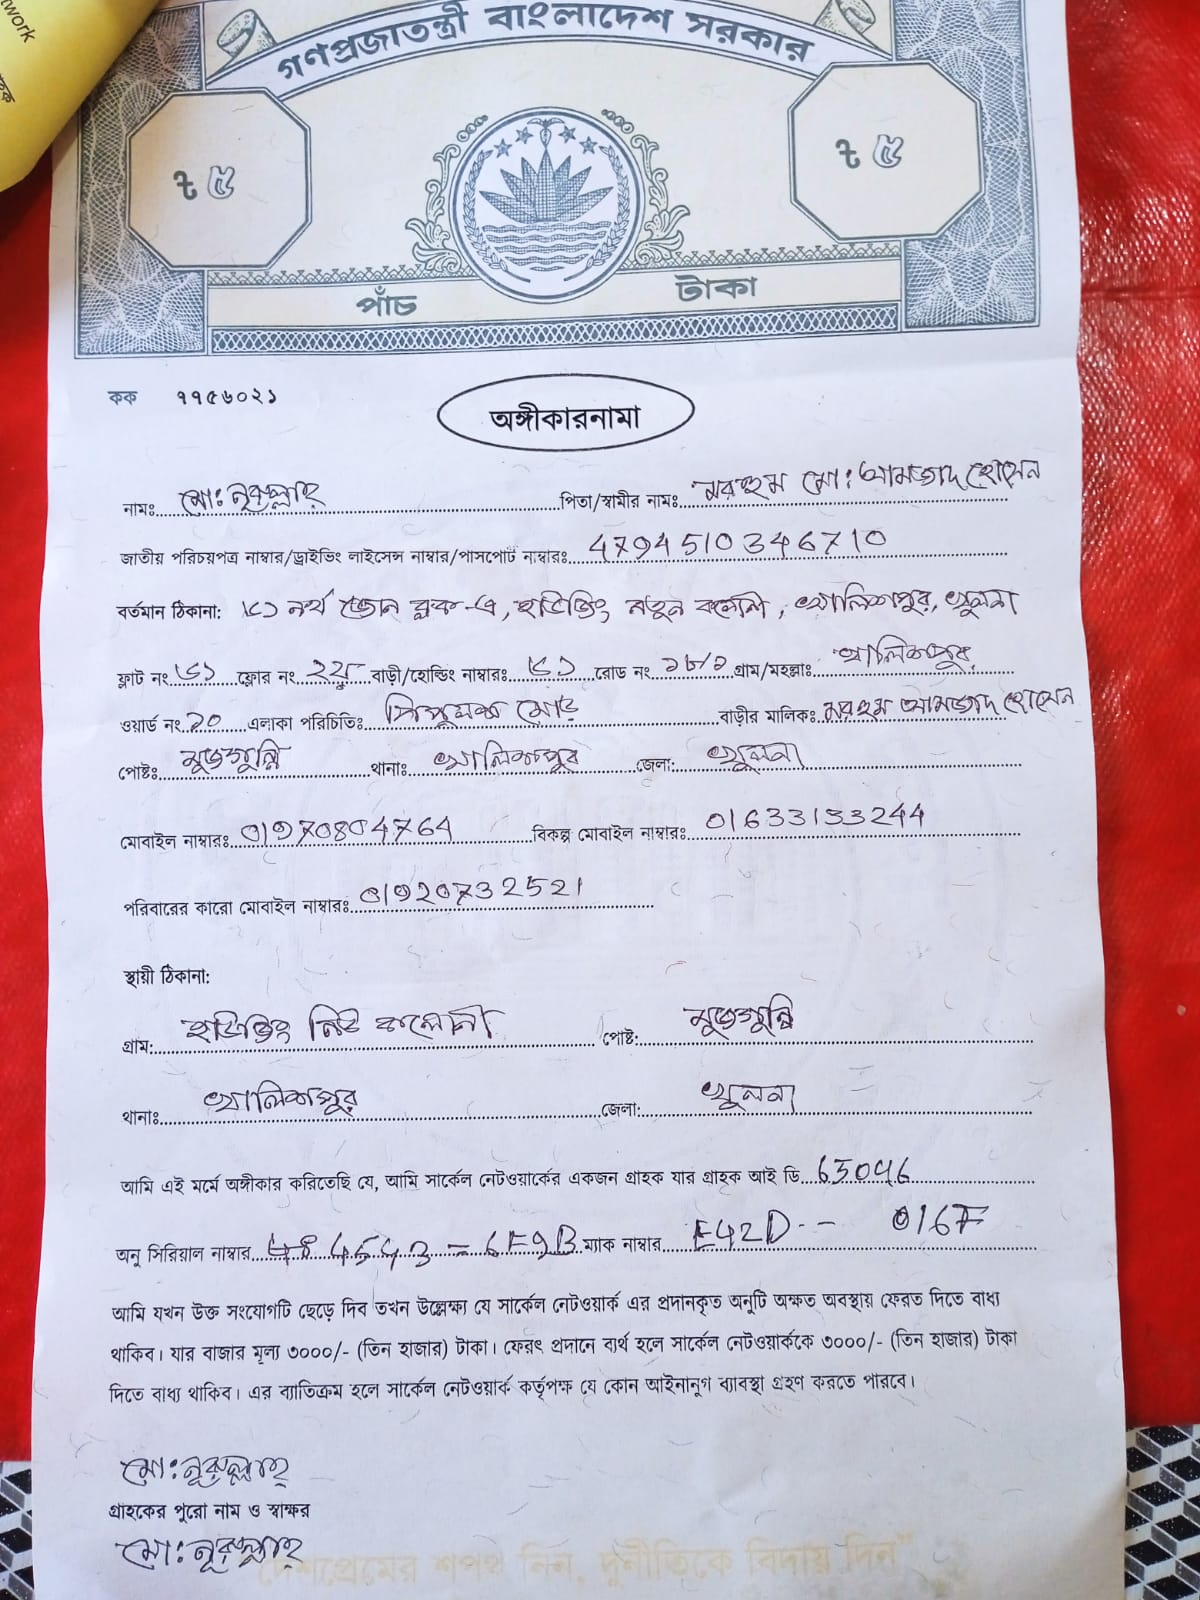 twork
গণপ্রজাতন্ত্রী বাংলাদেশ সরকার
৳ ৫ ৳ ৫
পাঁচ টাকা
কক ৭৭৫৬০২১
অঙ্গীকারনামা
নামঃ মো: নূরুল্লাহ্ পিতা/স্বামীর নামঃ মরহুম মো: আমজাদ হোসেন
জাতীয় পরিচয়পত্র নাম্বার/ড্রাইভিং লাইসেন্স নাম্বার/পাসপোর্ট নাম্বারঃ 4794510346710
বর্তমান ঠিকানা: নর্থ জোন ব্লক-এ, হাউজিং নতুন কলোনী, খালিশপুর, খুলনা
ফ্লাট নং ফ্লোর নং ২য় বাড়ী/হোল্ডিং নাম্বারঃ রোড নং ১৮/১ গ্রাম/মহল্লাঃ খালিশপুর
ওয়ার্ড নং ১০ এলাকা পরিচিতিঃ মোড় বাড়ীর মালিকঃ মরহুম আমজাদ হোসেন
পোষ্টঃ মুজগুন্নি থানাঃ খালিশপুর জেলা: খুলনা
মোবাইল নাম্বারঃ 01970804764 বিকল্প মোবাইল নাম্বারঃ 01633133244
পরিবারের কারো মোবাইল নাম্বারঃ 01920732521
স্থায়ী ঠিকানা:
গ্রাম: হাউজিং নিউ কলোনী পোষ্ট: মুজগুন্নি
থানাঃ খালিশপুর জেলা: খুলনা
আমি এই মর্মে অঙ্গীকার করিতেছি যে, আমি সার্কেল নেটওয়ার্কের একজন গ্রাহক যার গ্রাহক আই ডি 65096
অনু সিরিয়াল নাম্বার 4543 - 6F9B ম্যাক নাম্বার E42D -- 016F
আমি যখন উক্ত সংযোগটি ছেড়ে দিব তখন উল্লেক্ষ্য যে সার্কেল নেটওয়ার্ক এর প্রদানকৃত অনুটি অক্ষত অবস্থায় ফেরত দিতে বাধ্য
থাকিব। যার বাজার মূল্য ৩০০০/- (তিন হাজার) টাকা। ফেরৎ প্রদানে ব্যর্থ হলে সার্কেল নেটওয়ার্ককে ৩০০০/- (তিন হাজার) টাকা
দিতে বাধ্য থাকিব। এর ব্যাতিক্রম হলে সার্কেল নেটওয়ার্ক কর্তৃপক্ষ যে কোন আইনানুগ ব্যাবস্থা গ্রহণ করতে পারবে।
মো: নূরুল্লাহ্
গ্রাহকের পুরো নাম ও স্বাক্ষর
মো: নূরুল্লাহ্
দেশপ্রেমের শপথ নিন, দুর্নীতিকে বিদায় দিন"